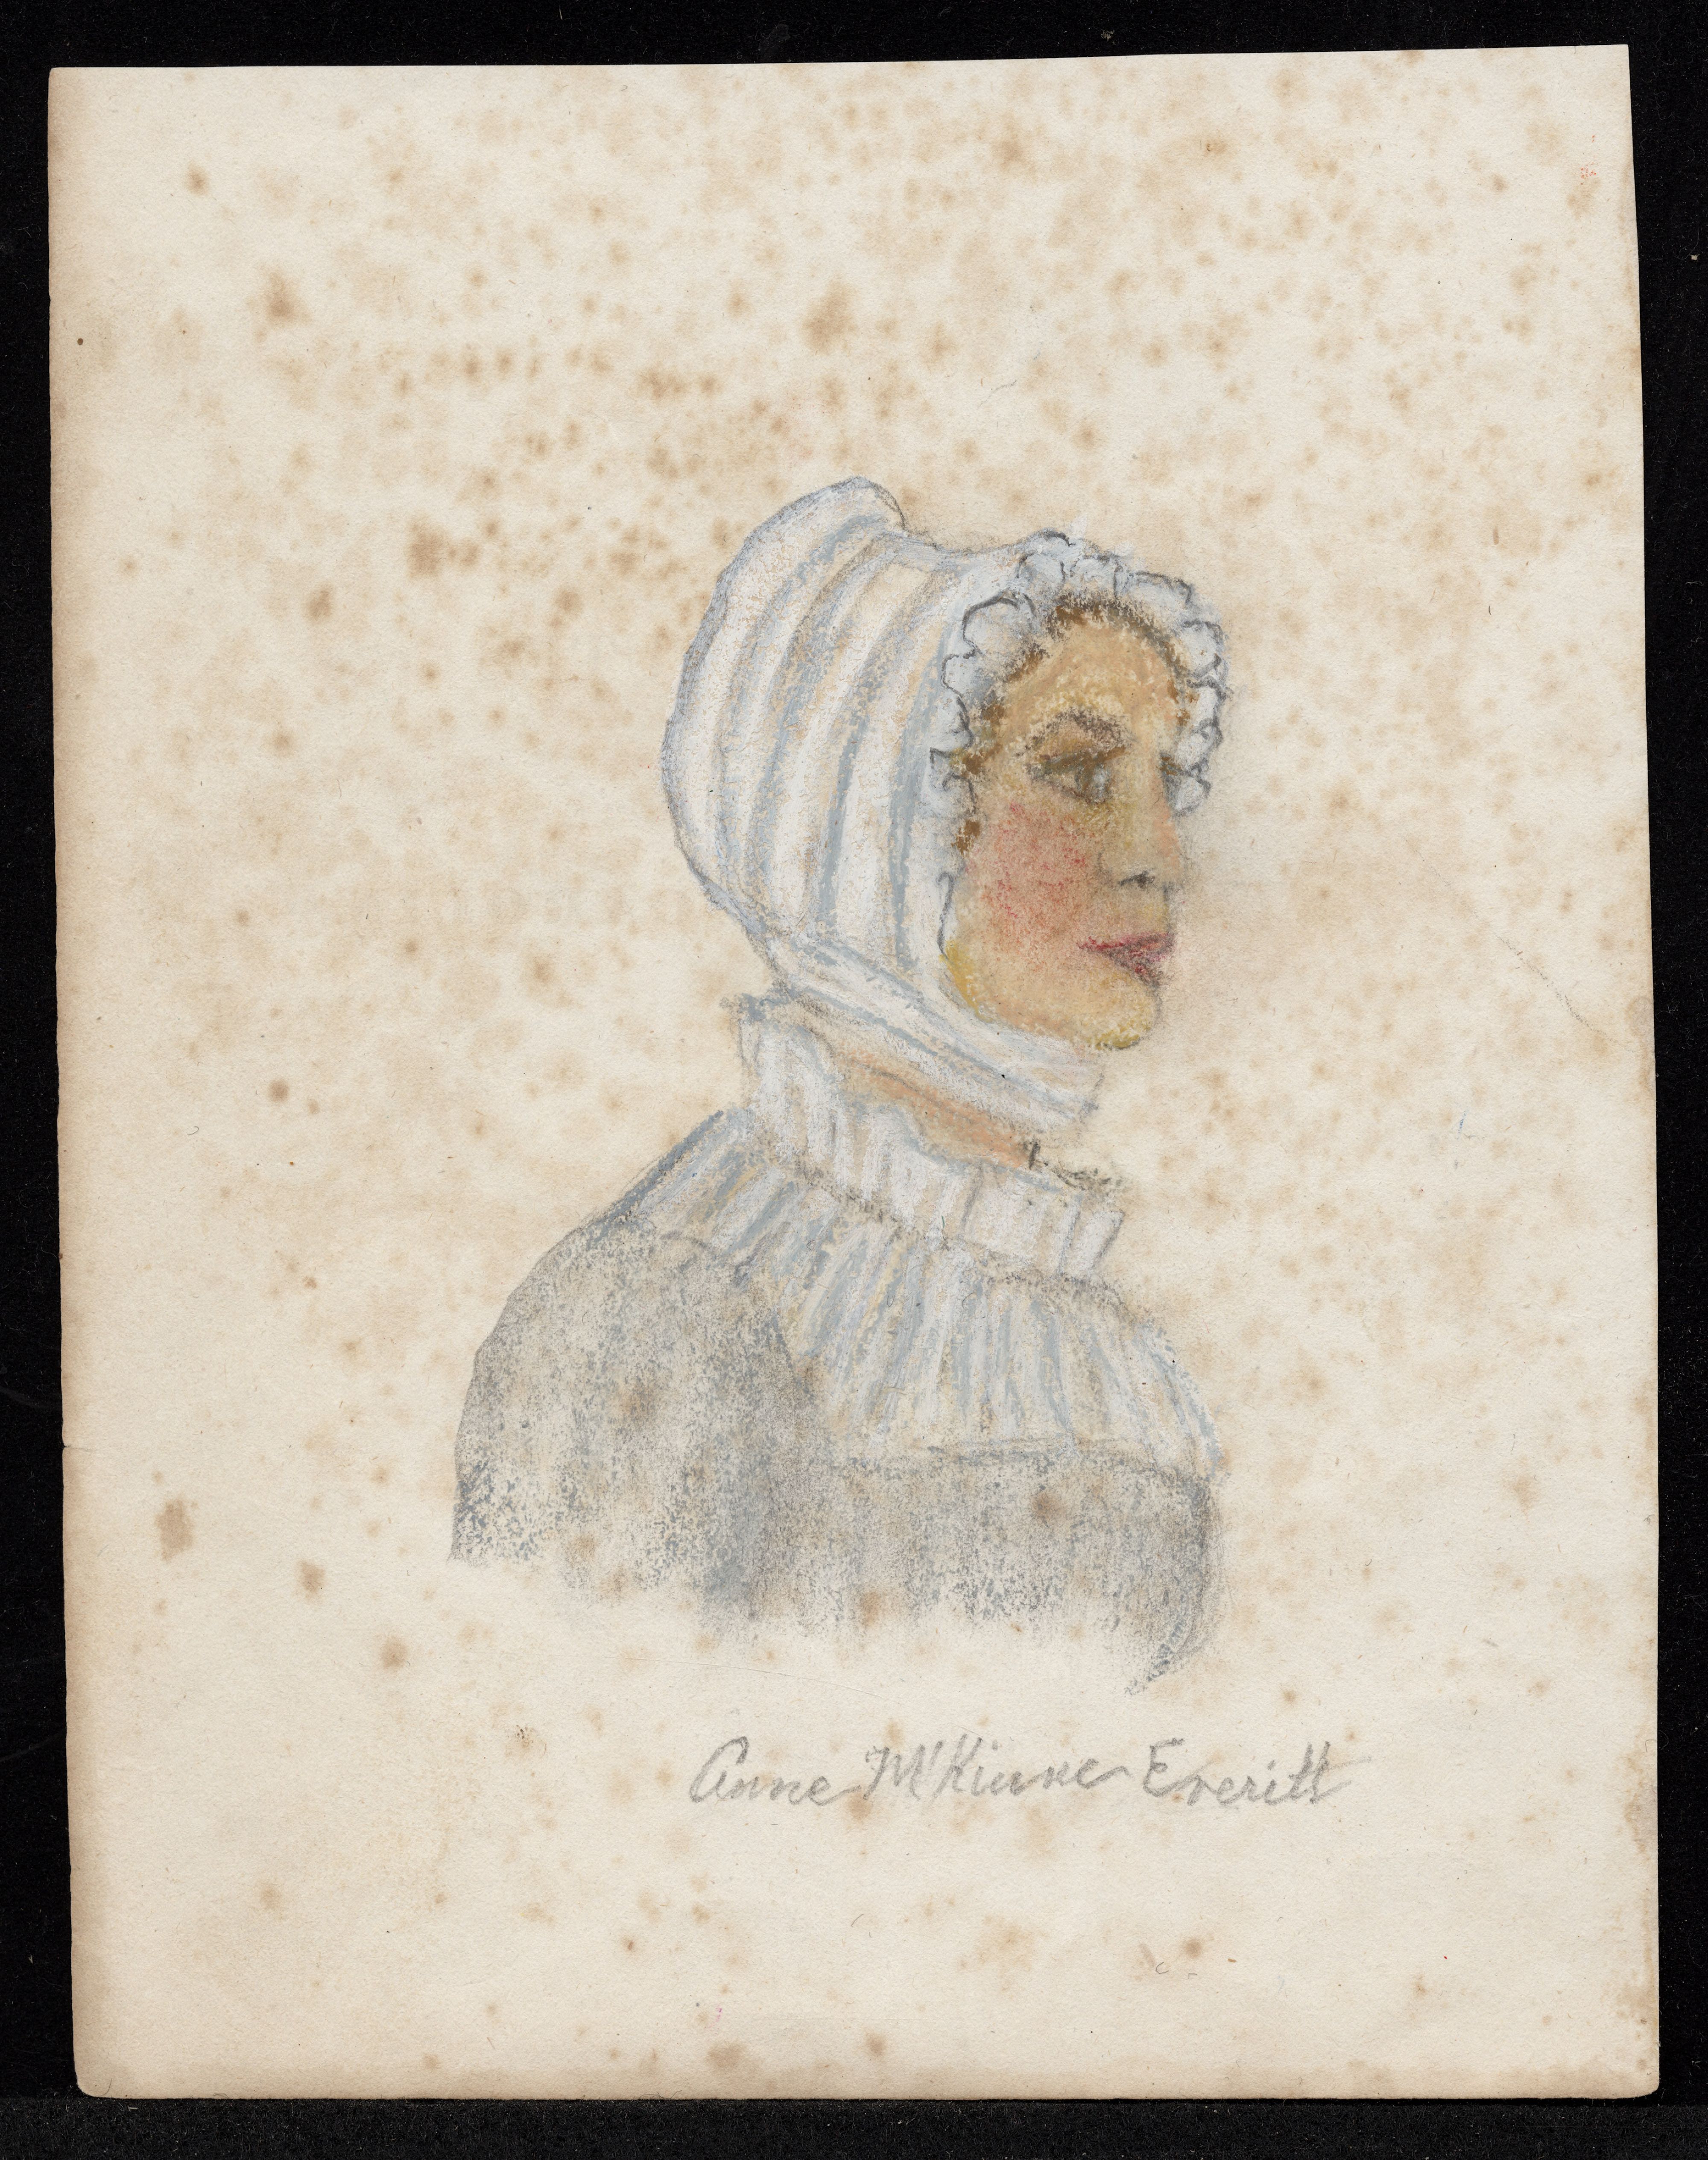 Anne McKinne Everitt